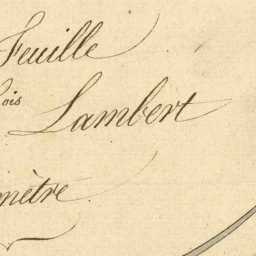 Feuille
ois
Lambert
mètre.